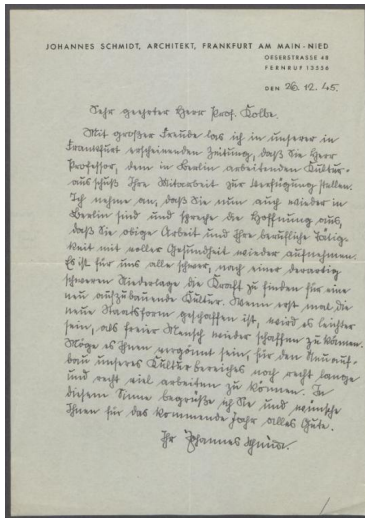 JOHANNES SCHMIDT, ARCHITEKT, FRANKFURT AM MAIN-NIED
OESERSTRASSE 48
FERNRUF 13356
DEN 26.12.45.
Sehr geehrter Herr Prof. Kolbe.
Mit großer Freude las ich in unserer in
Frankfurt erscheinenden Zeitung, daß Sie Herr
Professor, dem in Berlin arbeitenden Kultur-
ausschuß Ihre Mitarbeit zur Verfügung stellen.
Ich nehme an, daß Sie nun auch wieder in
Berlin sind und spreche die Hoffnung aus,
daß Sie obige Arbeit und Ihre berufliche Tätig-
keit mit voller Gesundheit wieder aufnehmen.
Es ist für uns alle schwer, nach einer derartig
schweren Niederlage die Kraft zu finden für eine
neu aufzubauende Kultur. Wenn erst mal die
neue Staatsform geschaffen ist, wird es leichter
sein, als freier Mensch wieder schaffen zu können.
Möge es Ihnen vergönnt sein, für den Neuauf-
bau unseres Kulturbereiches noch recht lange
und recht viel arbeiten zu können. In
diesem Sinne begrüße ich Sie und wünsche
Ihnen für das kommende Jahr alles Gute.
Ihr Johannes Schmidt.